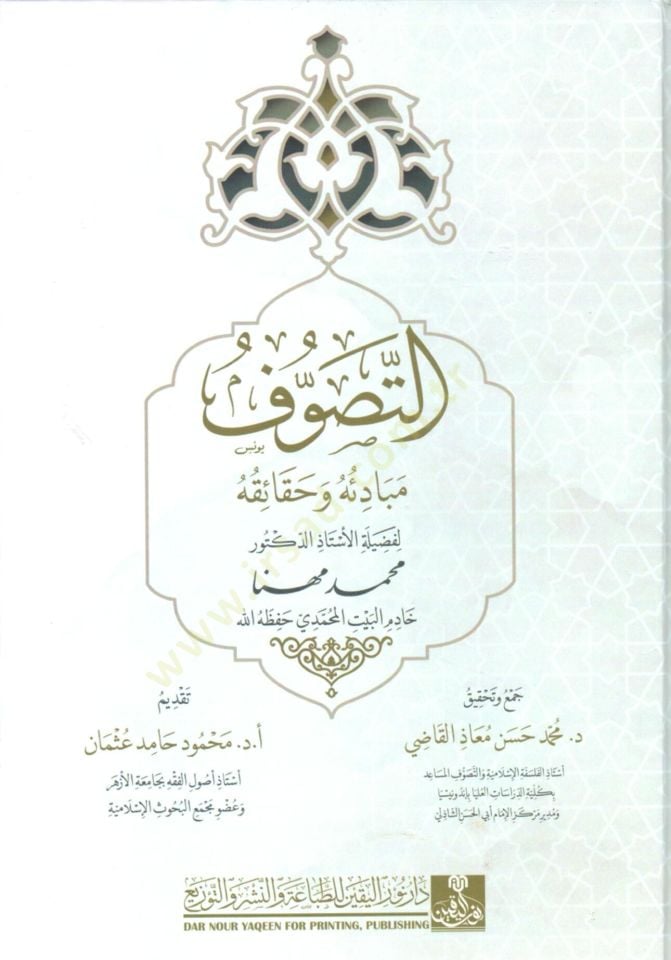 التَّصَوُّفُ
يونس
مَبَادِئُهُ وَحَقَائِقُهُ
لِفَضِيلَةِ الأُسْتَاذِ الدُّكْتُور
محمد مهنا
خَادِمِ البَيْتِ المُحَمَّدِيّ حَفِظَهُ الله
جَمْعُ وَتَحْقِيقُ
د. مُحَمَّد حَسَن مُعَاذ القَاضِي
أستاذ الفلسفة الإسلامية والتصوف المساعد
بكلية الدراسات العليا بإندونيسيا
ومدير مركز الإمام أبي الحسن الشاذلي
تَقْدِيمُ
أ.د. مَحْمُود حَامِد عُثْمَان
أستاذ أصول الفقه بجامعة الأزهر
وعضو مجمع البحوث الإسلامية
www.irsad.com.tr
دار نور اليقين للطباعة والنشر والتوزيع
DAR NOUR YAQEEN FOR PRINTING, PUBLISHING
نور اليقين